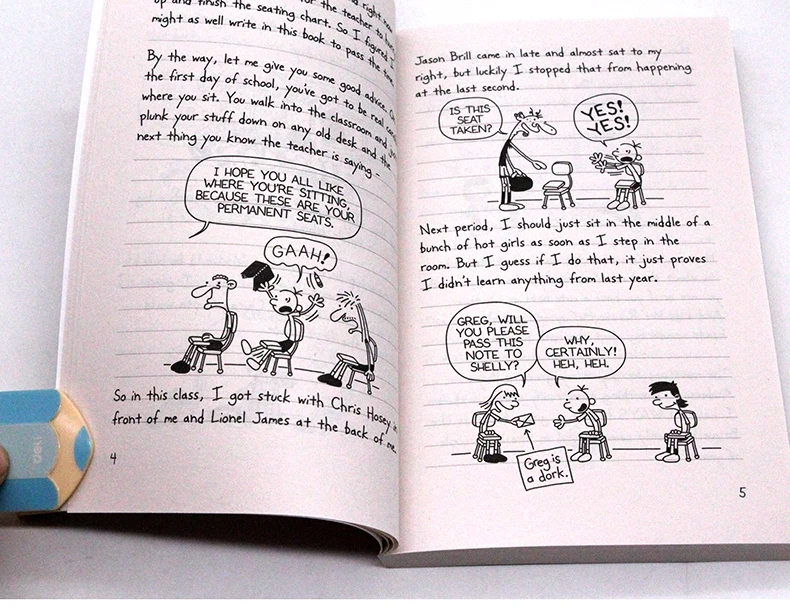 right now
up and finish the seating chart. So I figured I
might as well write in this book to pass the time.
By the way, let me give you some good advice. On
the first day of school, you've got to be real careful
where you sit. You walk into the classroom and just
plunk your stuff down on any old desk and the
next thing you know the teacher is saying -
I HOPE YOU ALL LIKE
WHERE YOU'RE SITTING,
BECAUSE THESE ARE YOUR
PERMANENT SEATS.
GAAH!
So in this class, I got stuck with Chris Hosey in
front of me and Lionel James at the back of me.
4
deli
Jason Brill came in late and almost sat to my
right, but luckily I stopped that from happening
at the last second.
IS THIS
SEAT
TAKEN?
YES!
YES!
Next period, I should just sit in the middle of a
bunch of hot girls as soon as I step in the
room. But I guess if I do that, it just proves
I didn't learn anything from last year.
GREG, WILL
YOU PLEASE
PASS THIS
NOTE TO
SHELLY?
WHY,
CERTAINLY!
HEH, HEH.
Greg is
a dork.
5